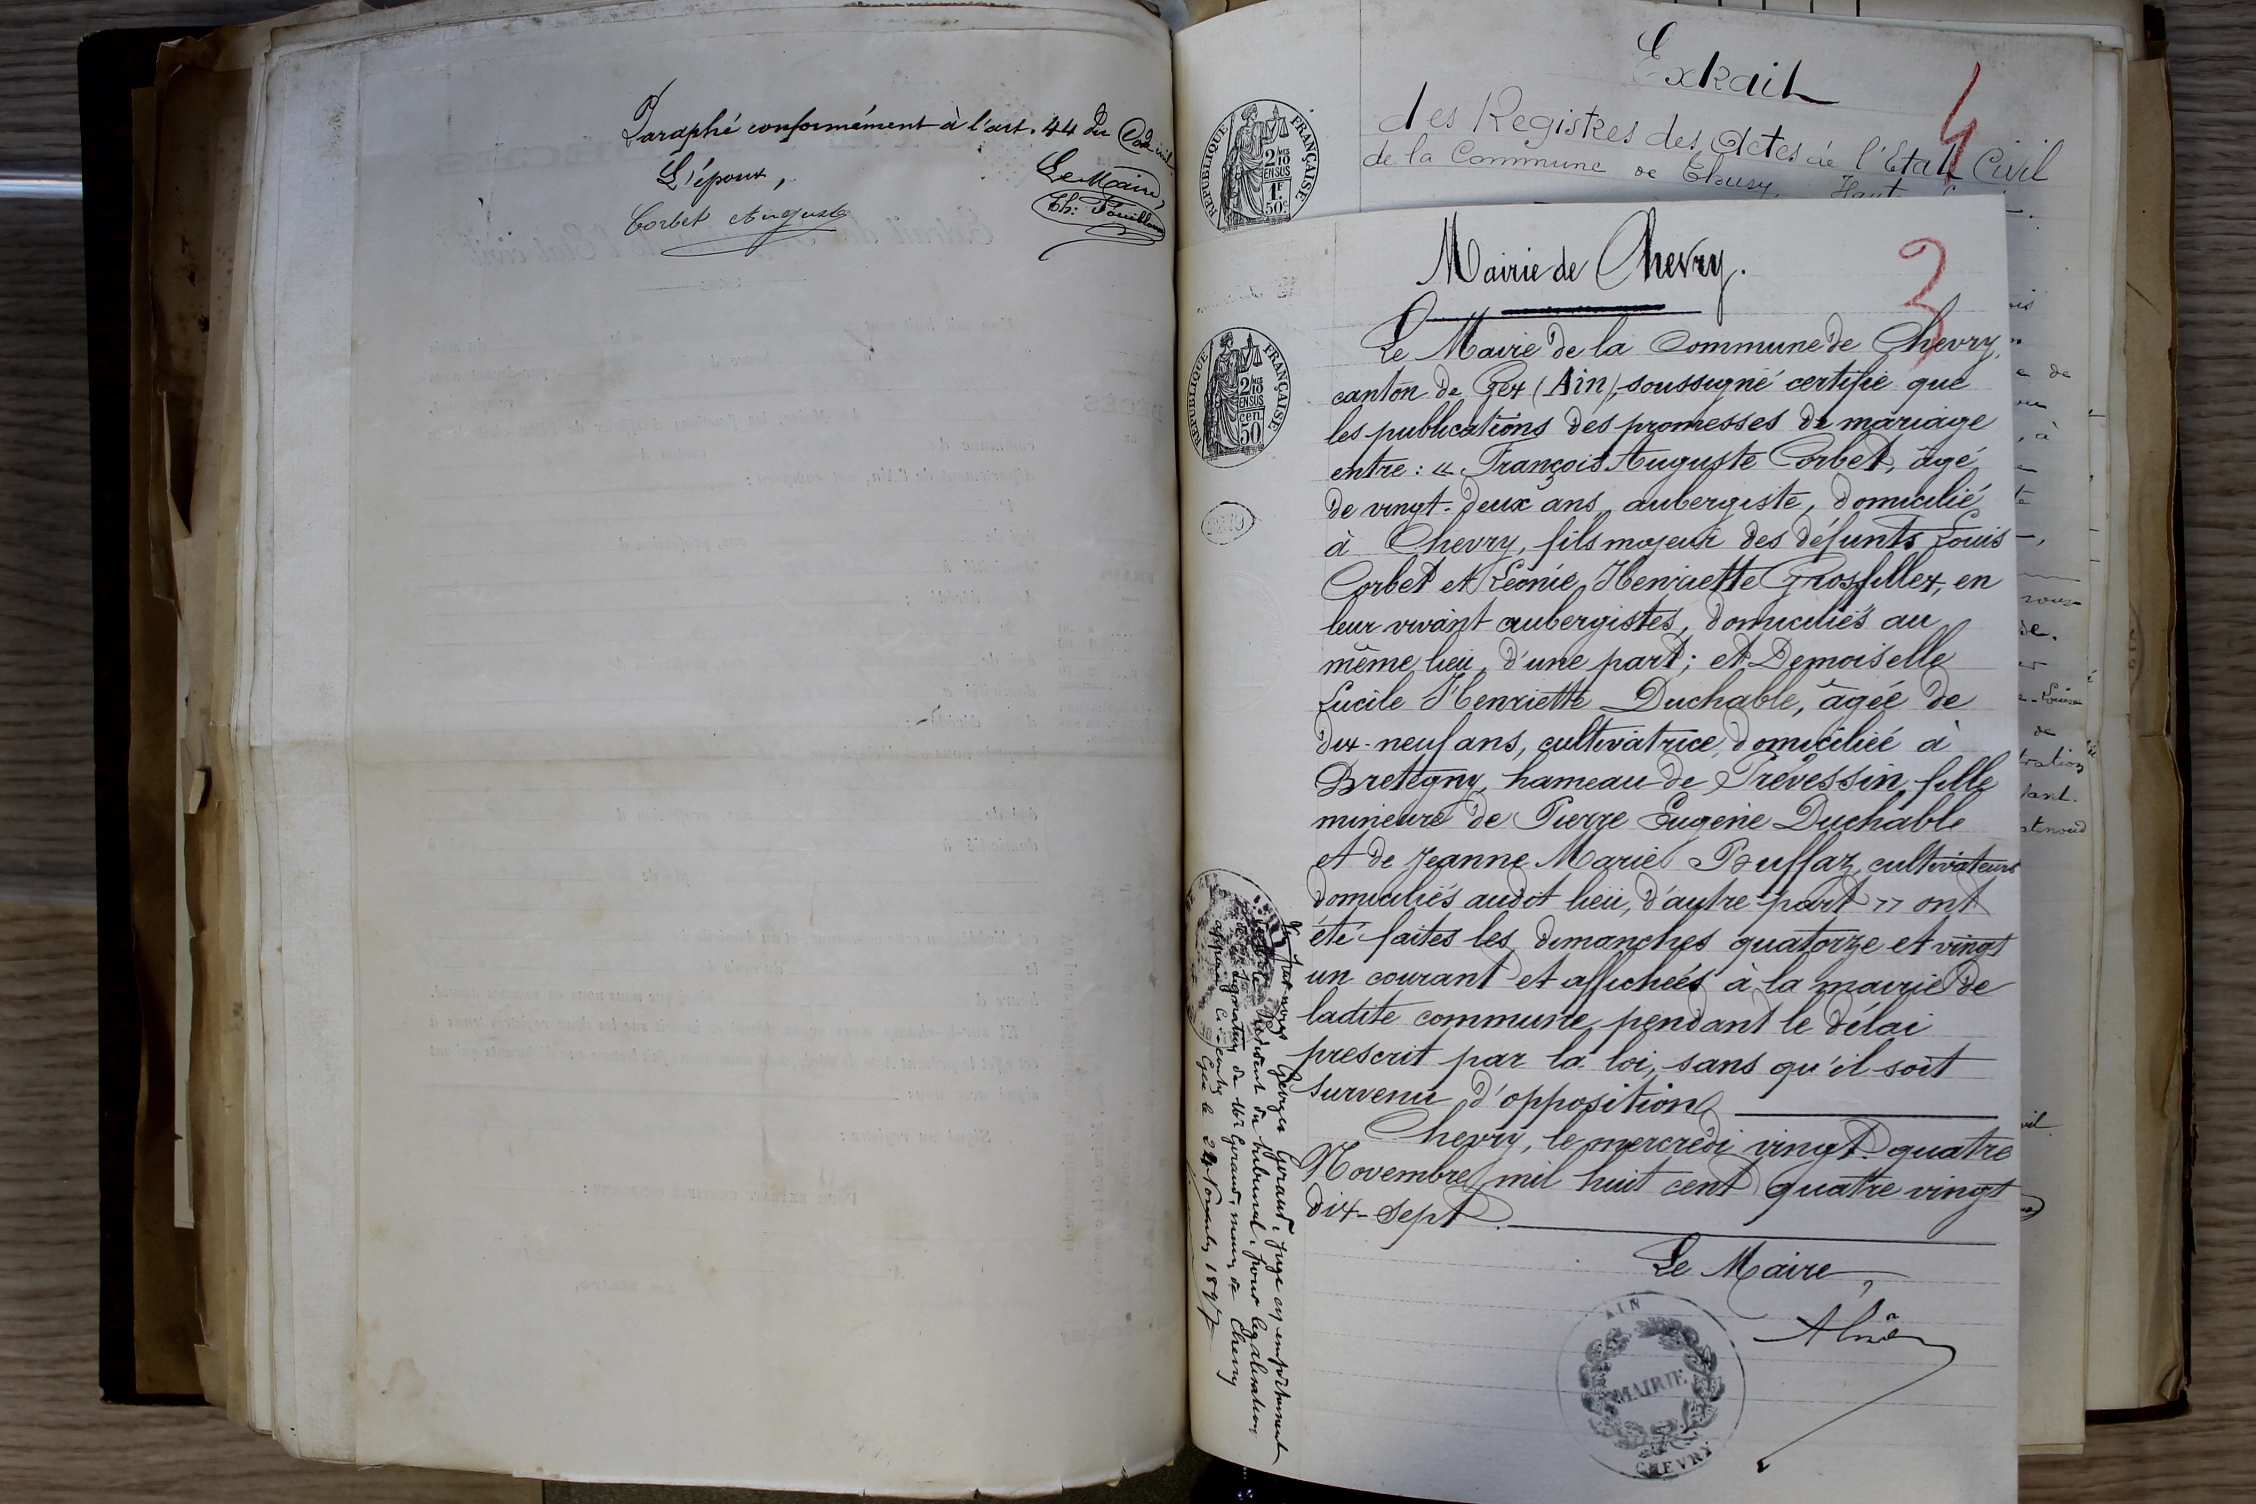 Paraphé conformément à l'art. 44 du Code civil.
L'époux,
Le Maire,
Corbet Auguste
Extrait
des Registres des Actes de l'Etat Civil
de la Commune de
4
RÉPUBLIQUE FRANÇAISE
2/10 MES
EN SUS
1F
50c
Mairie de Chevry.
3
RÉPUBLIQUE FRANÇAISE
2/10 MES
EN SUS
cen
50
Le Maire de la Commune de Chevry,
canton de Gex (Ain), soussigné certifie que
les publications des promesses de mariage
entre : « François Auguste Corbet, âgé
de vingt-deux ans, aubergiste, domicilié
à Chevry, fils majeur des défunts Louis
Corbet et Léonie Henriette Grosfillex, en
leur vivant aubergistes, domiciliés au
même lieu, d'une part ; et Demoiselle
Lucile Henriette Duchable, âgée de
dix-neuf ans, cultivatrice, domiciliée à
Bretegny, hameau de Prévessin, fille
mineure de Pierre Eugène Duchable
et de Jeanne Marie Buffaz, cultivateurs
domiciliés audit lieu, d'autre part » ont
été faites les dimanches quatorze et vingt
un courant et affichées à la mairie de
ladite commune, pendant le délai
prescrit par la loi, sans qu'il soit
survenu d'opposition
Chevry, le mercredi vingt-quatre
Novembre mil huit cent quatre vingt
dix-sept.
Le Maire,
AIN
MAIRIE
CHEVRY
Vu par nous Georges Goraud, juge en empêchement
Président du tribunal, pour légalisation
de la signature de Mr Goraud, maire de Chevry
apposée ci-contre
Gex le 24 Novembre 1897